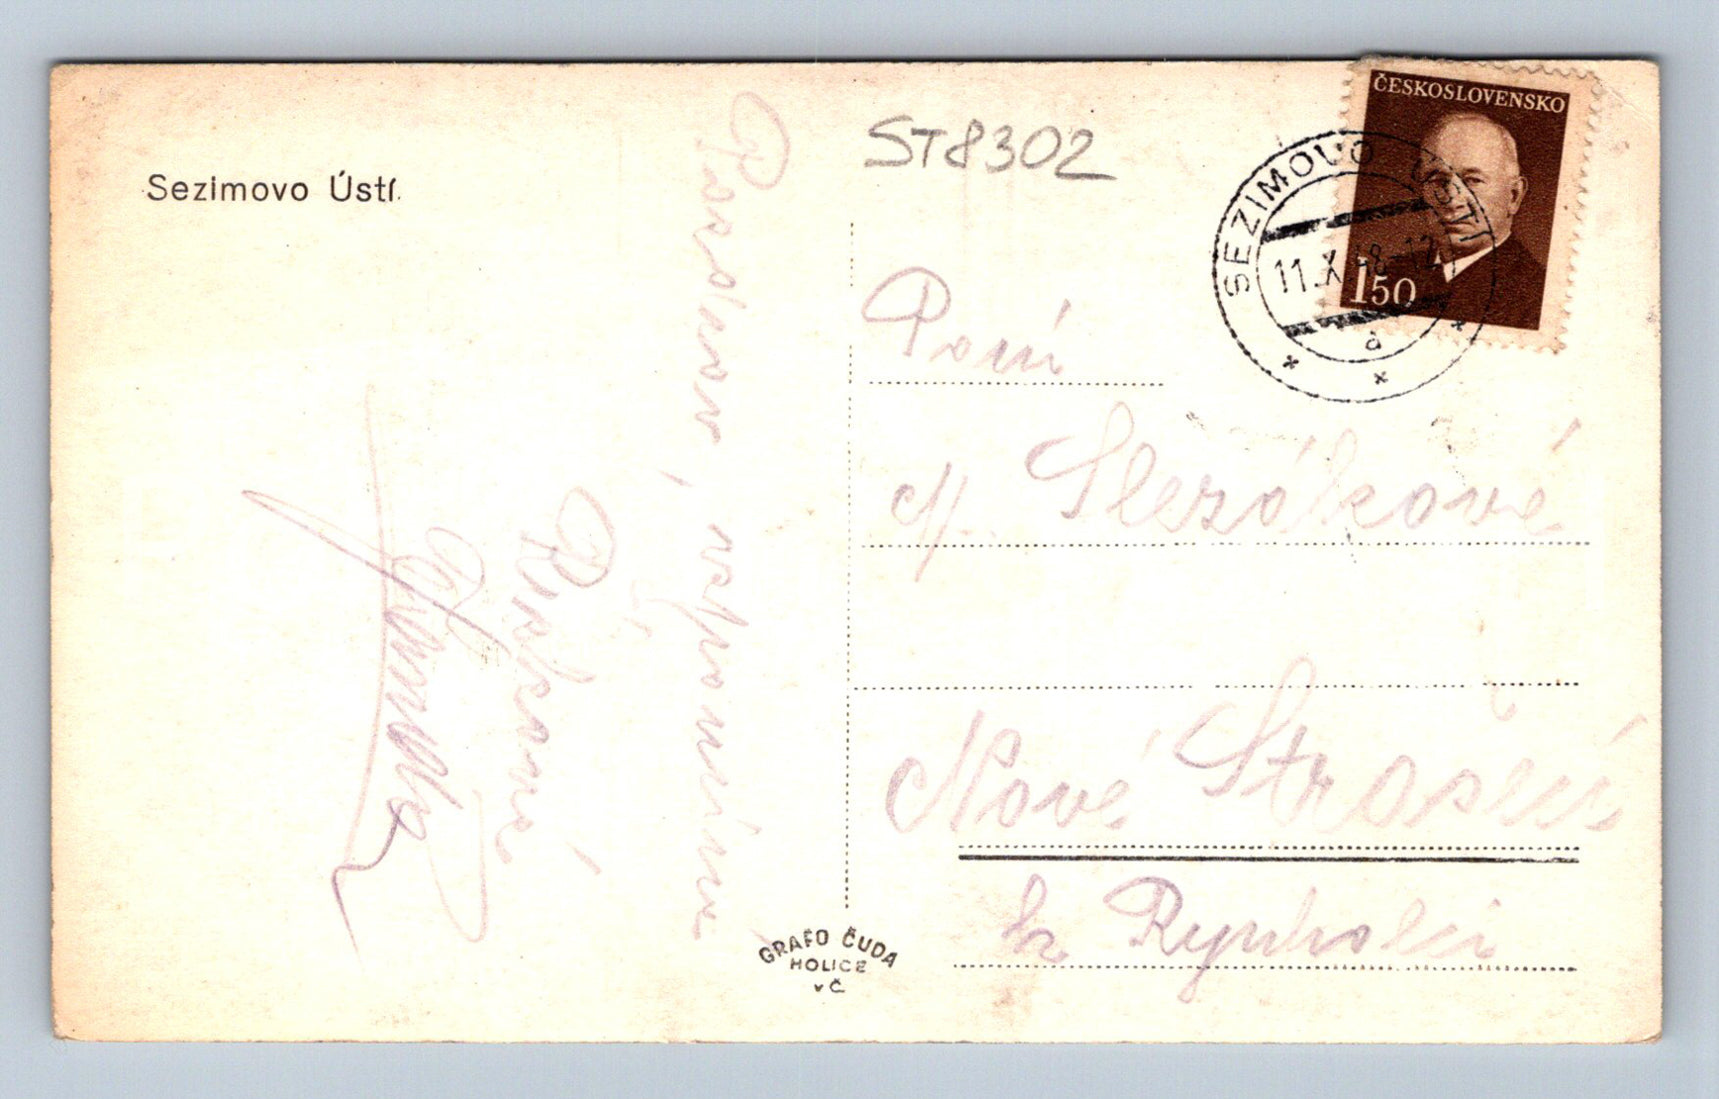 Sezimovo Ústí.
ST8302
ČESKOSLOVENSKO
150
SEZIMOVO ÚSTÍ
11.X.48-12
a
Pozdrav, vzpomíná
Paní
M. Slezáková
Nové Strašecí
Rynholci
GRAFO ČUDA
HOLICE
v Č